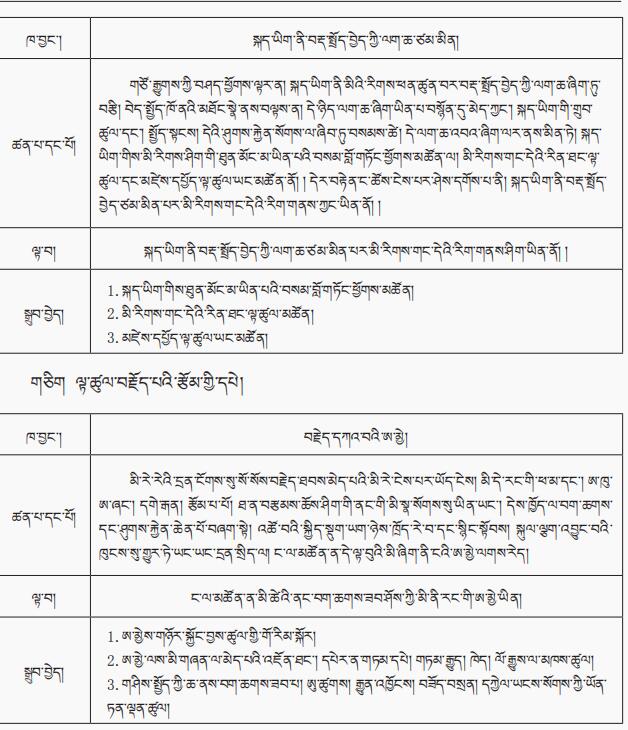 ཁ་བྱང་། སྐད་ཡིག་ནི་བརྡ་སྤྲོད་བྱེད་ཀྱི་ལག་ཆ་ཙམ་མིན།
གཙོ་རྒྱུགས་ཀྱི་བཤད་ཕྱོགས་ལྟར་ན། སྐད་ཡིག་ནི་མིའི་རིགས་ཕན་ཚུན་བར་བརྡ་སྤྲོད་བྱེད་ཀྱི་ལག་ཆ་ཞིག་ཏུ་
བརྩི། བེད་སྤྱོད་ཁོ་ནའི་མཐོང་སྣེ་ནས་བལྟས་ན། དེ་ཉིད་ལག་ཆ་ཞིག་ཡིན་པ་བསྙོན་དུ་མེད་ཀྱང་། སྐད་ཡིག་གི་གྲུབ་
ཚན་པ་དང་པོ། ཚུལ་དང་། སྤྱོད་སྟངས། དེའི་ཤུགས་རྐྱེན་སོགས་ལ་ཞིབ་ཏུ་བསམས་ཚེ། དེ་ལག་ཆ་འབའ་ཞིག་ལར་ནས་མིན་ཏེ། སྐད་
ཡིག་གིས་མི་རིགས་ཤིག་གི་ཐུན་མོང་མ་ཡིན་པའི་བསམ་བློ་གཏོང་ཕྱོགས་མཚོན་ལ། མི་རིགས་གང་དེའི་རིན་ཐང་ལྟ་
ཚུལ་དང་མཛེས་དཔྱོད་ལྟ་ཚུལ་ཡང་མཚོན་ནོ། །དེར་བརྟེན་ང་ཚོས་ངེས་པར་ཤེས་དགོས་པ་ནི། སྐད་ཡིག་ནི་བརྡ་སྤྲོད་
བྱེད་ཙམ་མིན་པར་མི་རིགས་གང་དེའི་རིག་གནས་ཀྱང་ཡིན་ནོ། །
ལྟ་བ། སྐད་ཡིག་ནི་བརྡ་སྤྲོད་བྱེད་ཀྱི་ལག་ཆ་ཙམ་མིན་པར་མི་རིགས་གང་དེའི་རིག་གནས་ཤིག་ཡིན་ནོ། །
1. སྐད་ཡིག་གིས་ཐུན་མོང་མ་ཡིན་པའི་བསམ་བློ་གཏོང་ཕྱོགས་མཚོན།
སྒྲུབ་བྱེད། 2. མི་རིགས་གང་དེའི་རིན་ཐང་ལྟ་ཚུལ་མཚོན།
3. མཛེས་དཔྱོད་ལྟ་ཚུལ་ཡང་མཚོན།
གཅིག ལྟ་ཚུལ་བརྗོད་པའི་རྩོམ་གྱི་དཔེ།
ཁ་བྱང་། བརྗེད་དཀའ་བའི་ཨ་མྱེ།
མི་རེ་རེའི་དྲན་ངོགས་སུ་སོ་སོས་བརྗེད་ཐབས་མེད་པའི་མི་རེ་ངེས་པར་ཡོད་ངེས། མི་དེ་རང་གི་ཕ་མ་དང་། ཨ་ཁུ་
ཨ་ཞང་། དགེ་རྒན། རྩོམ་པ་པོ། ཐ་ན་བརྩམས་ཆོས་ཤིག་གི་ནང་གི་མི་སྣ་སོགས་སུ་ཡིན་ཡང་། དེས་ཁྱོད་ལ་བག་ཆགས་
ཚན་པ་དང་པོ། དང་ཤུགས་རྐྱེན་ཆེན་པོ་བཞག་སྟེ། འཚོ་བའི་སྐྱིད་སྡུག་ཡག་ཉེས་ཁྲོད་རེ་བ་དང་སྙིང་སྟོབས། སྐུལ་ལྕག་འབྱུང་བའི་
ཁུངས་སུ་གྱུར་ཏེ་ཡང་ཡང་དྲན་སྲིད་ལ། ང་ལ་མཚོན་ན་དེ་ལྟ་བུའི་མི་ཞིག་ནི་ངའི་ཨ་མྱེ་ལགས་རེད།
ལྟ་བ། ང་ལ་མཚོན་ན་མི་ཚེའི་ནང་བག་ཆགས་ཟབ་ཤོས་ཀྱི་མི་ནི་རང་གི་ཨ་མྱེ་ཡིན།
1. ཨ་མྱེས་གཉོར་སྐྱོང་བྱས་ཚུལ་གྱི་གོ་རིམ་སྐོར།
2. ཨ་མྱེ་ལས་མི་གཞན་ལ་མེད་པའི་འཇོན་ཐང་། དཔེར་ན་གཏམ་དཔེ། གཏམ་རྒྱུད། ཁེད། ལོ་རྒྱུས་ལ་མཁས་ཚུལ།
སྒྲུབ་བྱེད། 3. གཤིས་སྤྱོད་ཀྱི་ཆ་ནས་བག་ཆགས་ཟབ་པ། ཨུ་ཚུགས། རྒྱུན་འཁྱོངས། བཟོད་བསྲན། དཀྱེལ་ཡངས་སོགས་ཀྱི་ཡོན་
ཏན་ལྡན་ཚུལ།